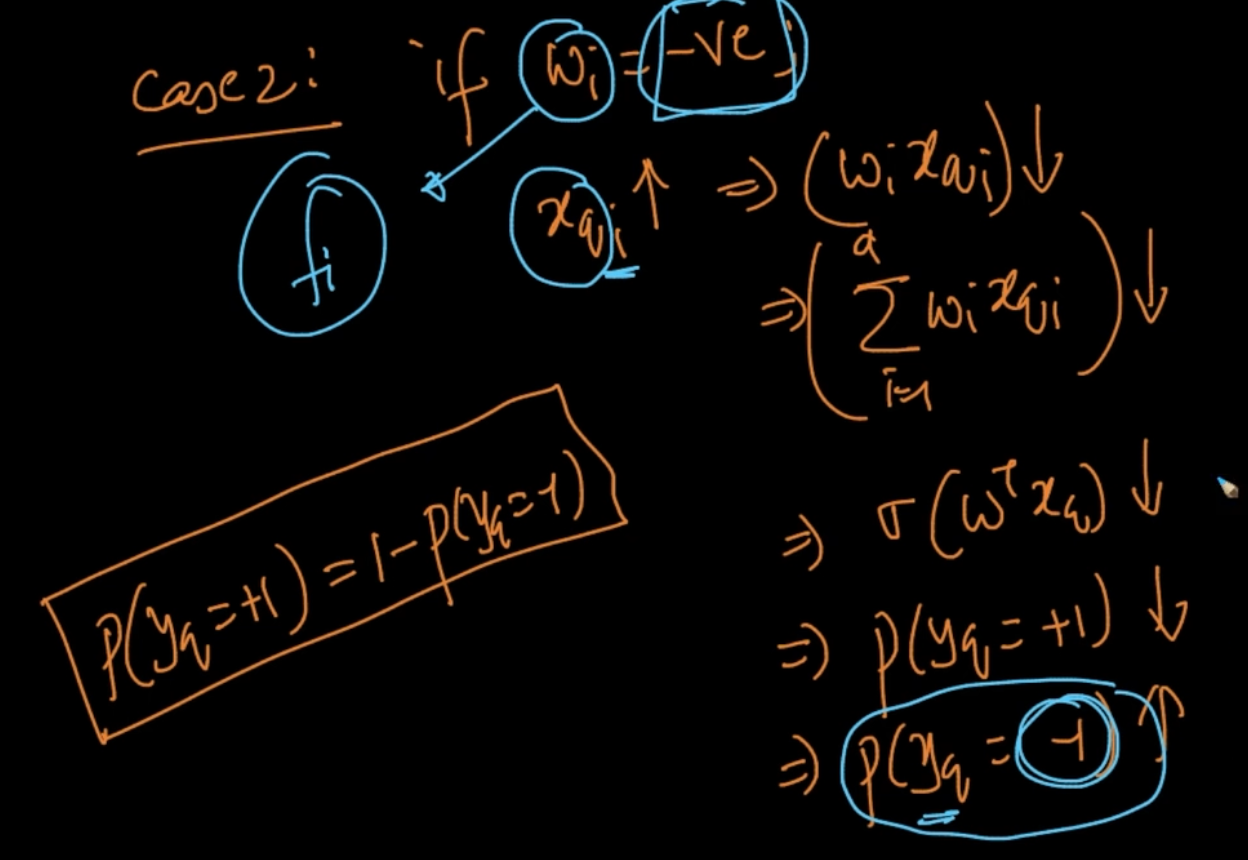 Case 2: if wᵢ = -ve;
fᵢ
x_qᵢ ↑ ⇒ (wᵢ x_qᵢ) ↓
⇒ (∑_{i=1}^{d} wᵢ x_qᵢ) ↓
⇒ σ(wᵀ x_q) ↓
P(y_q = +1) = 1 - P(y_q = -1)
⇒ P(y_q = +1) ↓
⇒ P(y_q = -1) ↑